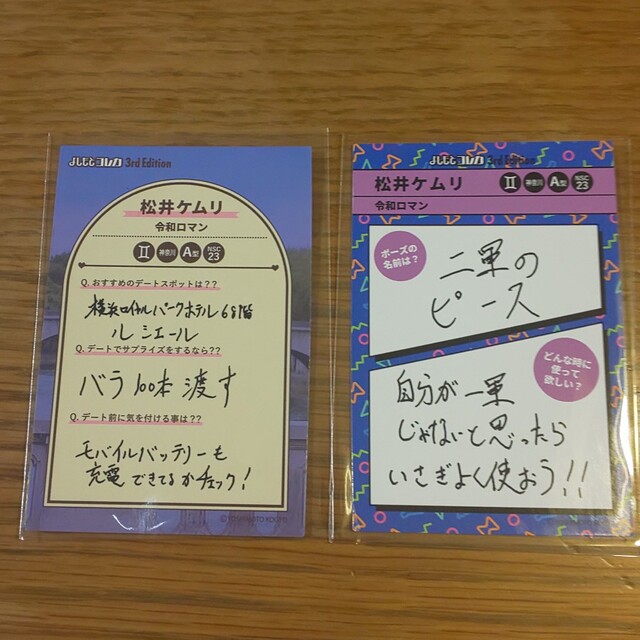 よしもとコレカ 3rd Edition
松井ケムリ
令和ロマン
♊ 神奈川 A型 NSC 23
Q. おすすめのデートスポットは??
横浜ロイヤルパークホテル68階
ル シエール
Q. デートでサプライズをするなら??
バラ100本渡す
Q. デート前に気を付ける事は??
モバイルバッテリーも
充電できてるかチェック!
よしもとコレカ 3rd Edition
松井ケムリ
♊ 神奈川 A型 NSC 23
令和ロマン
ポーズの
名前は?
二軍の
ピース
どんな時に
使って
欲しい?
自分が一軍
じゃないと思ったら
いさぎよく使おう!!